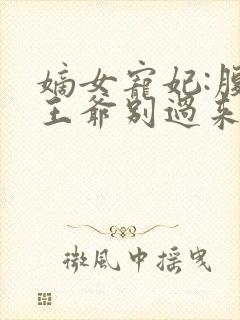 嫡女寵妃:腹
王爺別過來
微風中搖曳